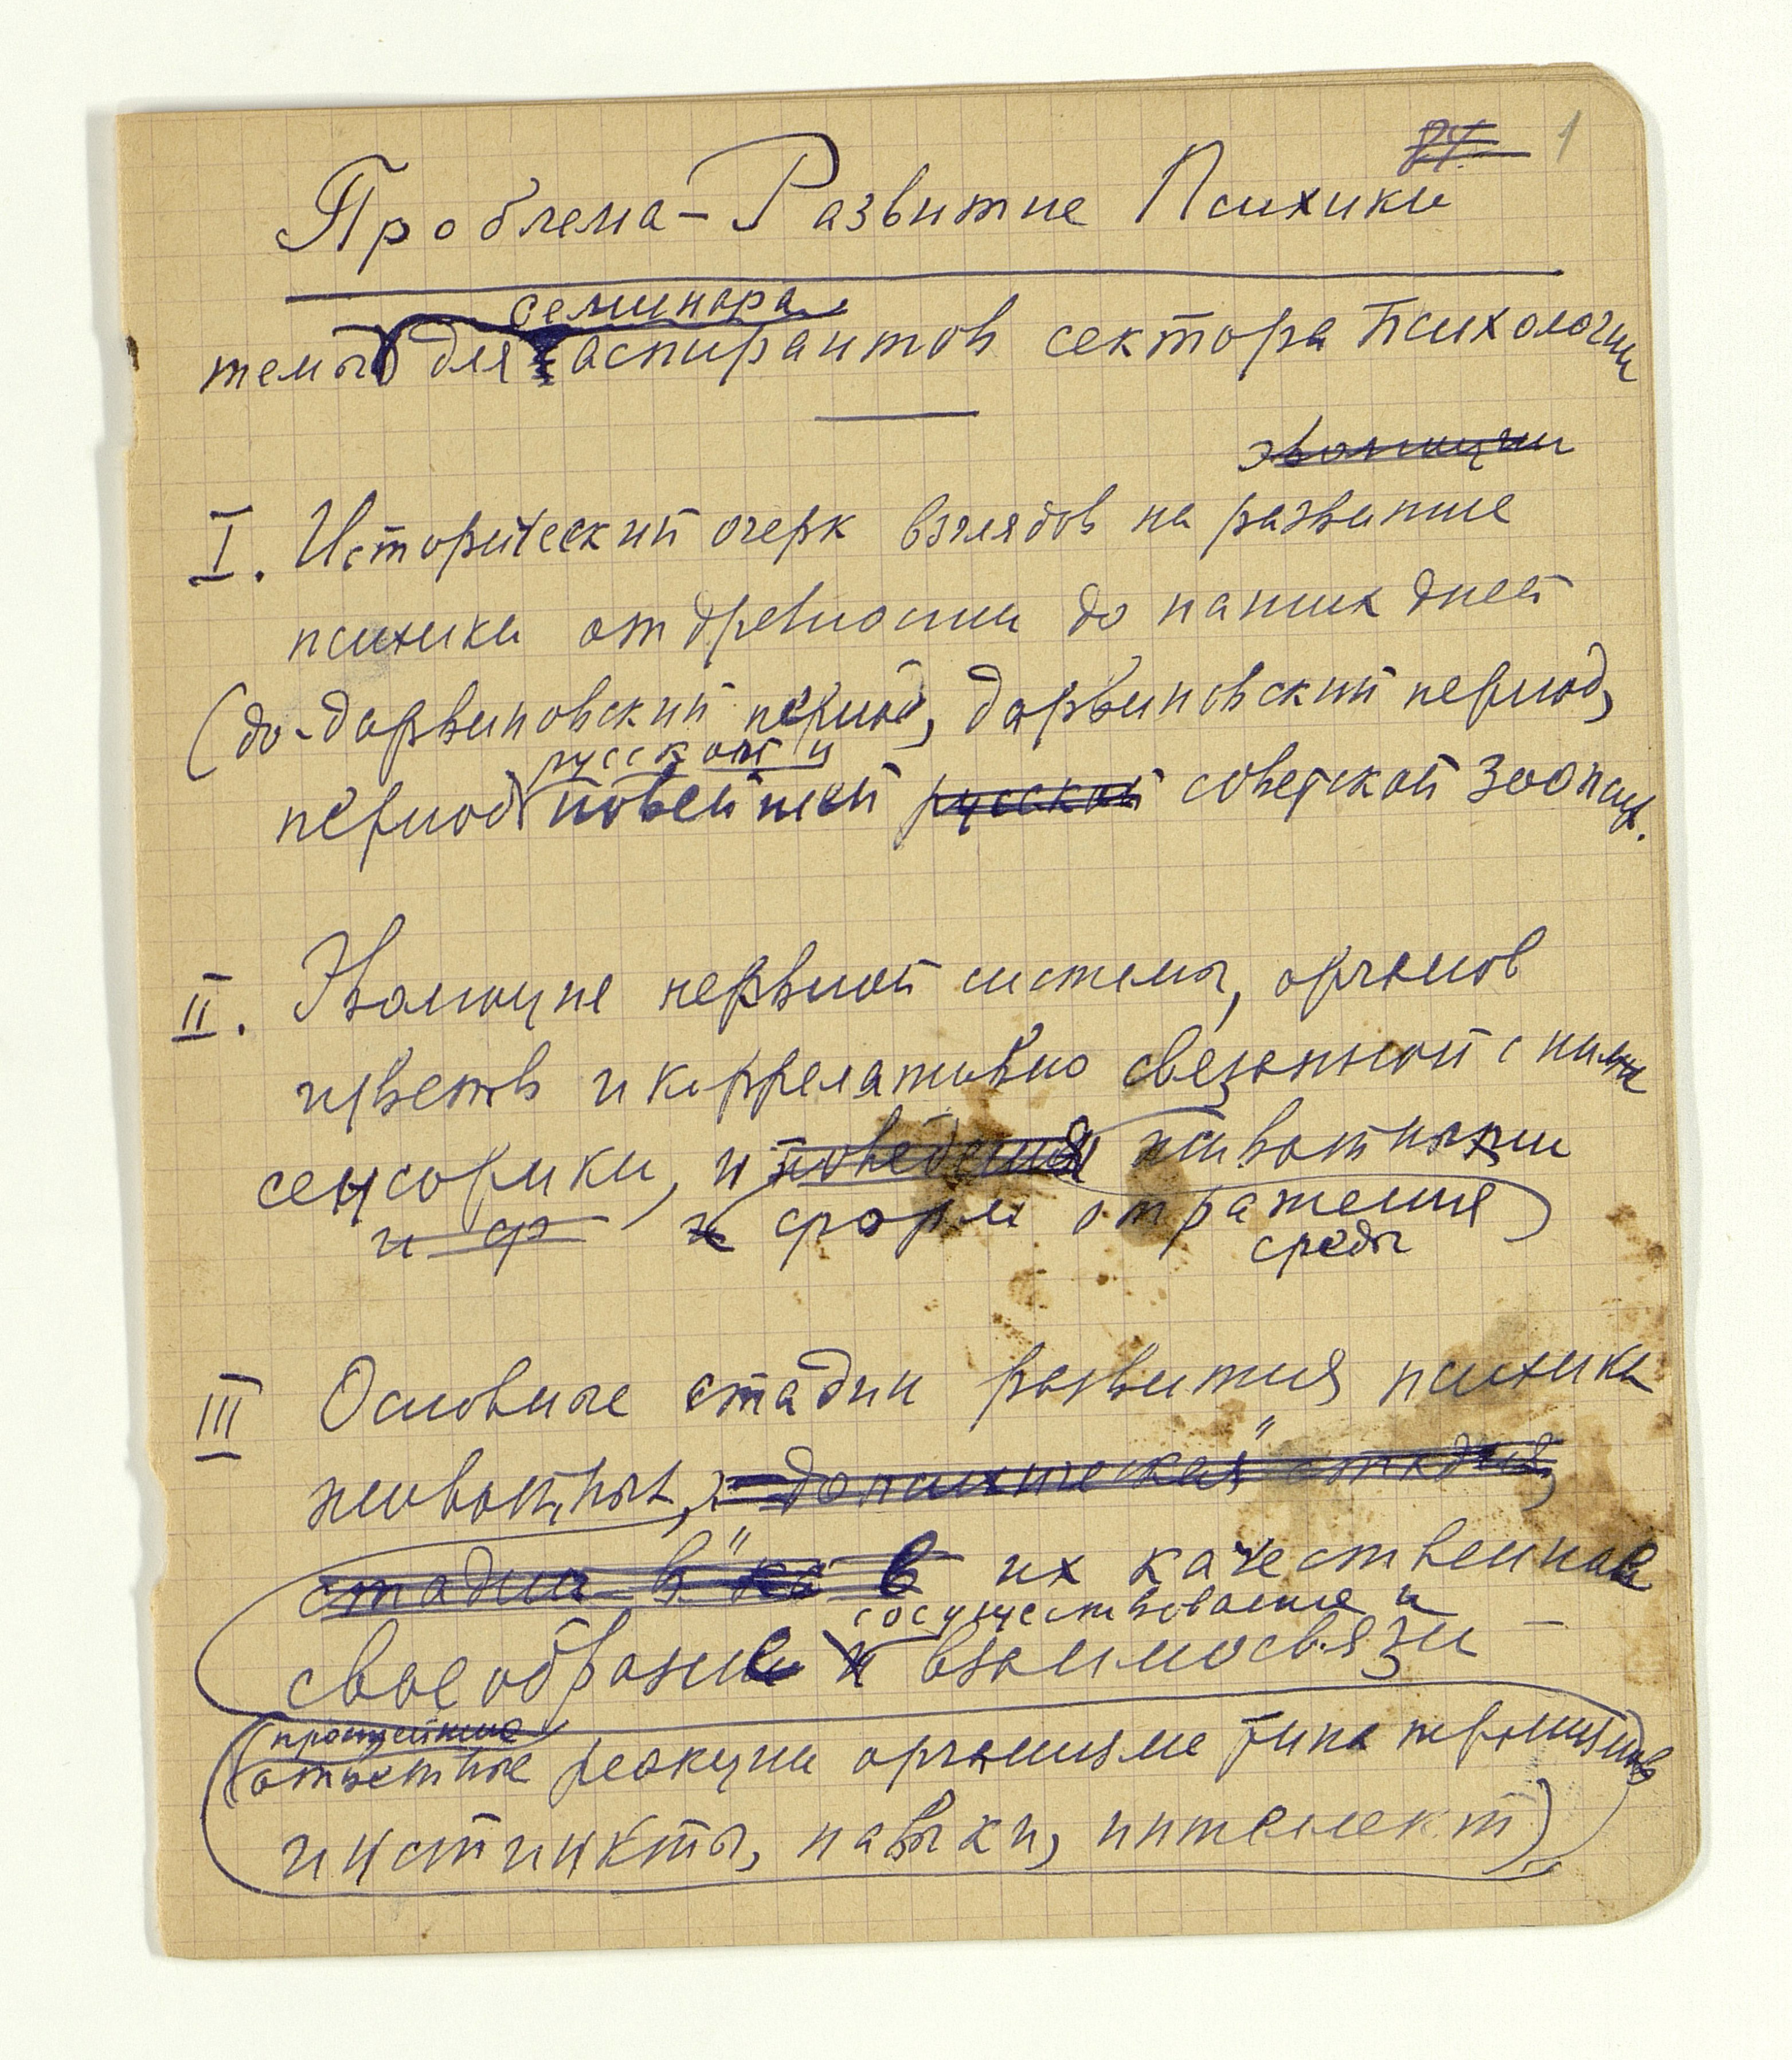 1
Проблема - Развитие Психики
семинара
темы для аспирантов сектора Психологии
эволюции
I. Исторический очерк взглядов на развитие
психики от древности до наших дней
(до-дарвиновский период, дарвиновский период,
русской и
период новейшей русской советской зоопсих.
II. Эволюция нервной системы, органов
чувств и коррелативно связанной с ними
сенсорики, и поведения животными
и ф и форм отражения
среды
III Основные стадии развития психики
животных, "допсихическая" стадия,
стадии в их качественное
сосуществование и
своеобразие и взаимосвязи -
(простейшие
(ответные реакции организме типа тропизмов
инстинкты, навыки, интелект)